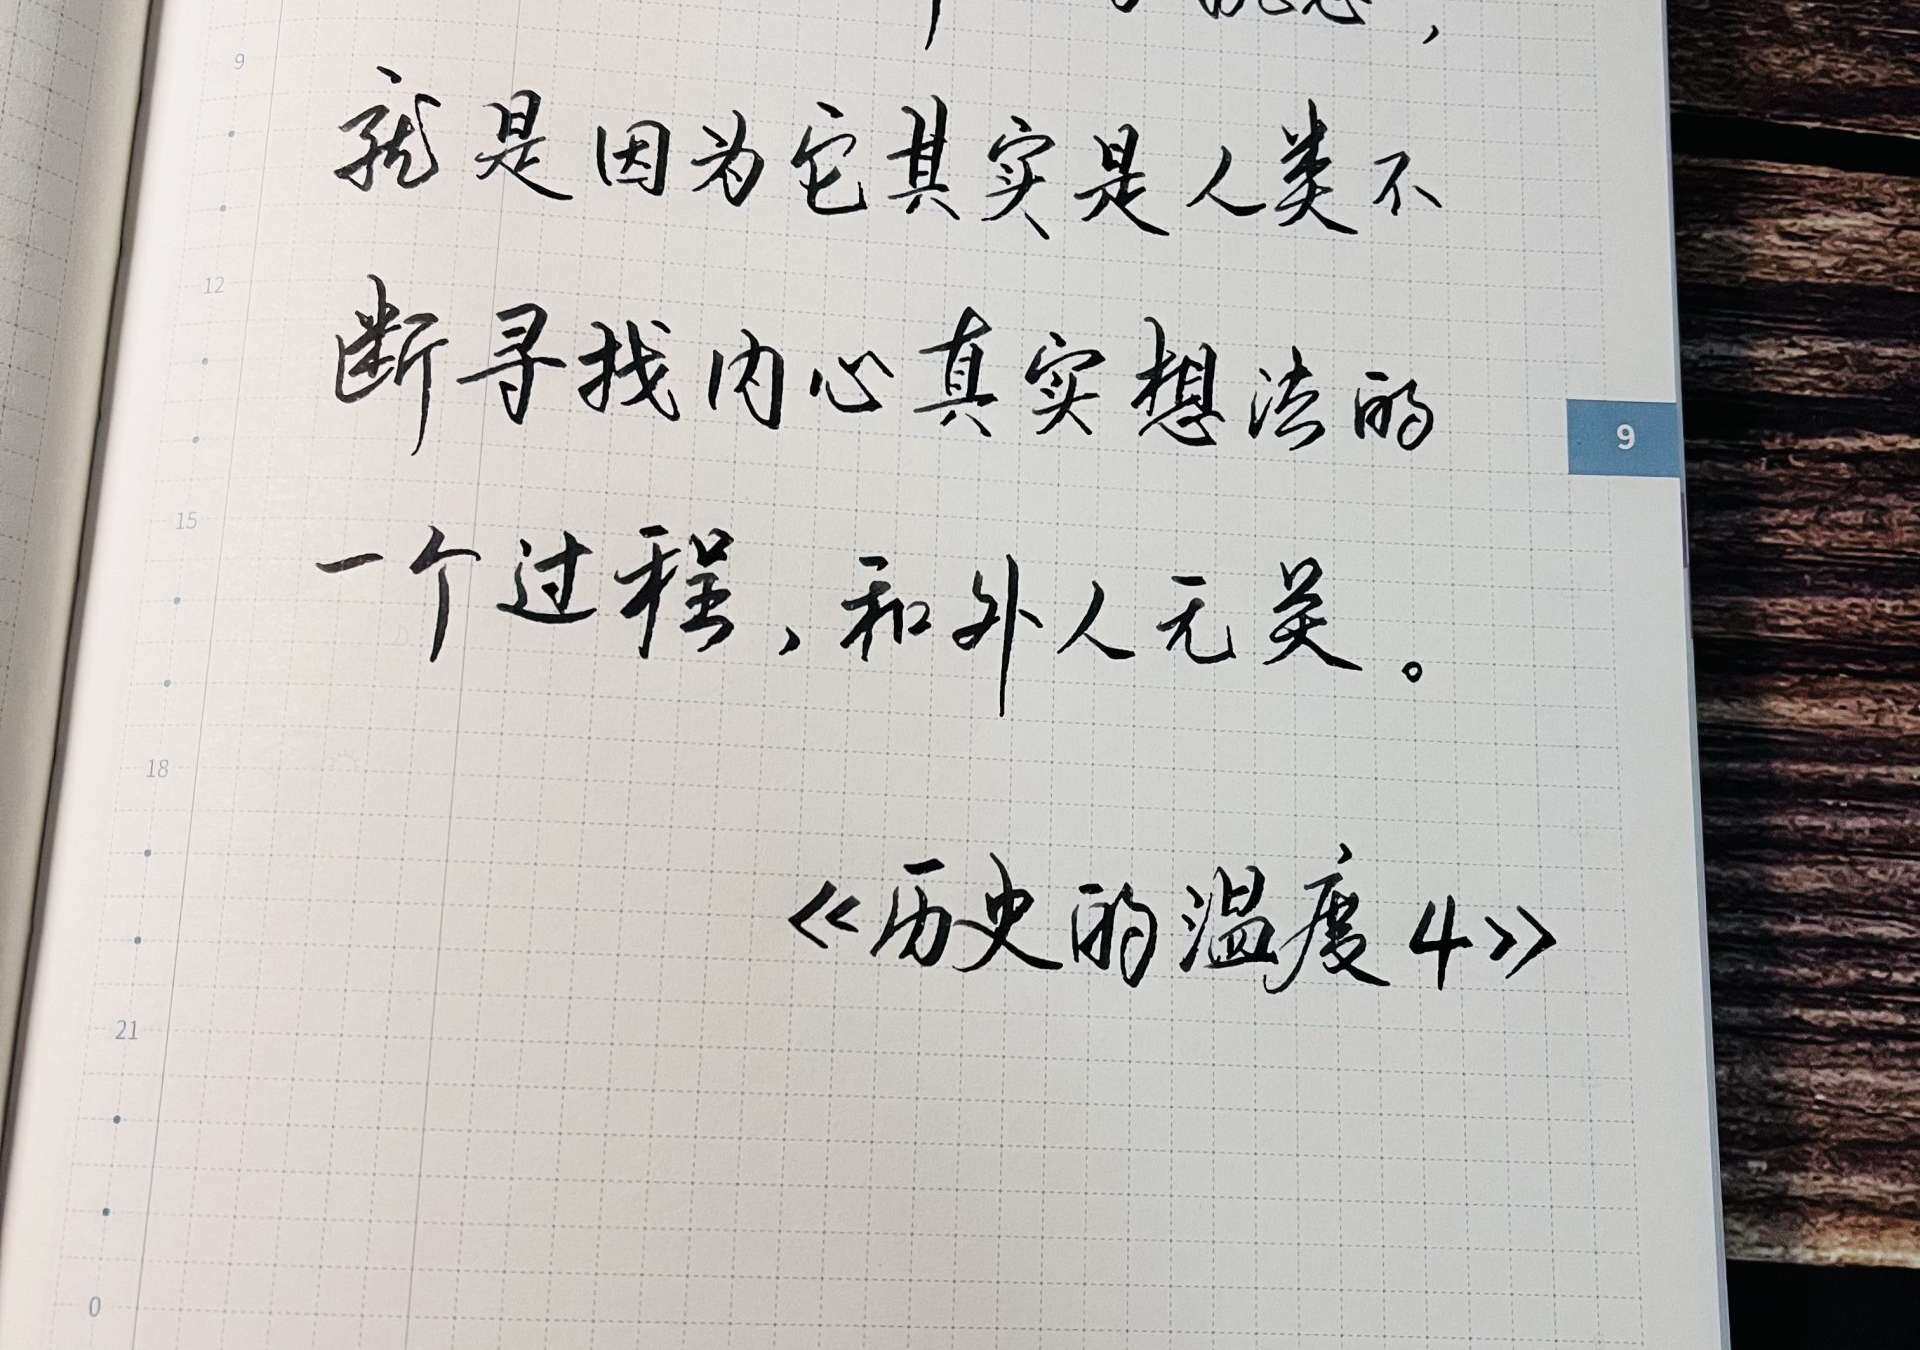 9
就是因为它其实是人类不
12
断寻找内心真实想法的
9
15
一个过程，和外人无关。
18
《历史的温度4》
21
0